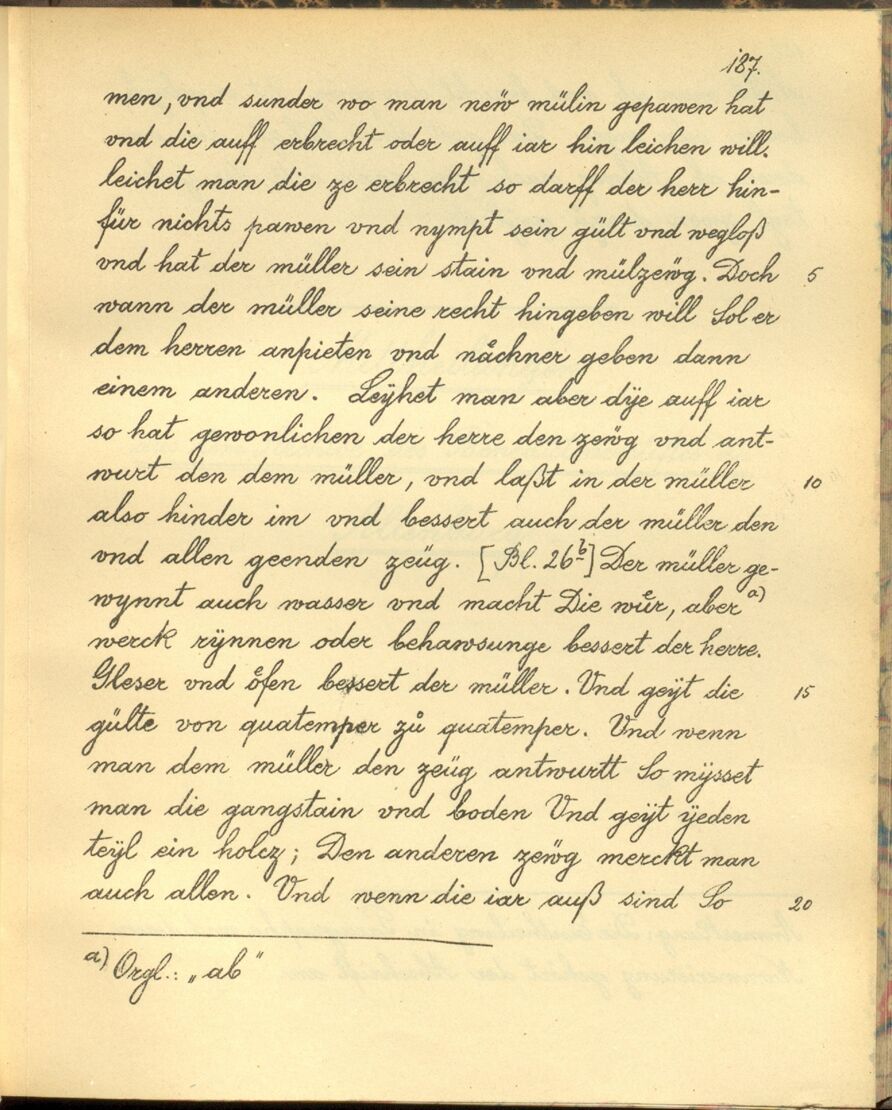 187.
men, vnd sunder wo man new̋ mülin gepawen hat
vnd die auff erbrecht oder auff iar hin leichen will.
leichet man die ze erbrecht so darff der herr hin-
für nichts pawen vnd nympt sein gült vnd wegloß
vnd hat der müller sein stain vnd mülzew̋g. Doch 5
wann der müller seine recht hingeben will Sol er
dem herren anpieten vnd nåchner geben dann
einem anderen. Leÿhet man aber dÿe auff iar
so hat gewonlichen der herre den zew̋g vnd ant-
wurt den dem müller, vnd laßt in der müller 10
also hinder im vnd bessert auch der müller den
vnd allen geenden zeüg. [Bl. 26b] Der müller ge-
wynnt auch wasser vnd macht Die wůr, aber a)
werck rÿnnen oder behawsunge bessert der herre.
Gleser vnd o̊fen bessert der müller. Vnd geÿt die 15
gülte von quatemper zů quatemper. Vnd wenn
man dem müller den zeüg antwurtt So mÿsset
man die gangstain vnd boden Vnd geÿt ÿeden
teÿl ein holcz; Den anderen zew̋g merckt man
auch allen. Vnd wenn die iar auß sind So 20
a) Orgl.: „ab"